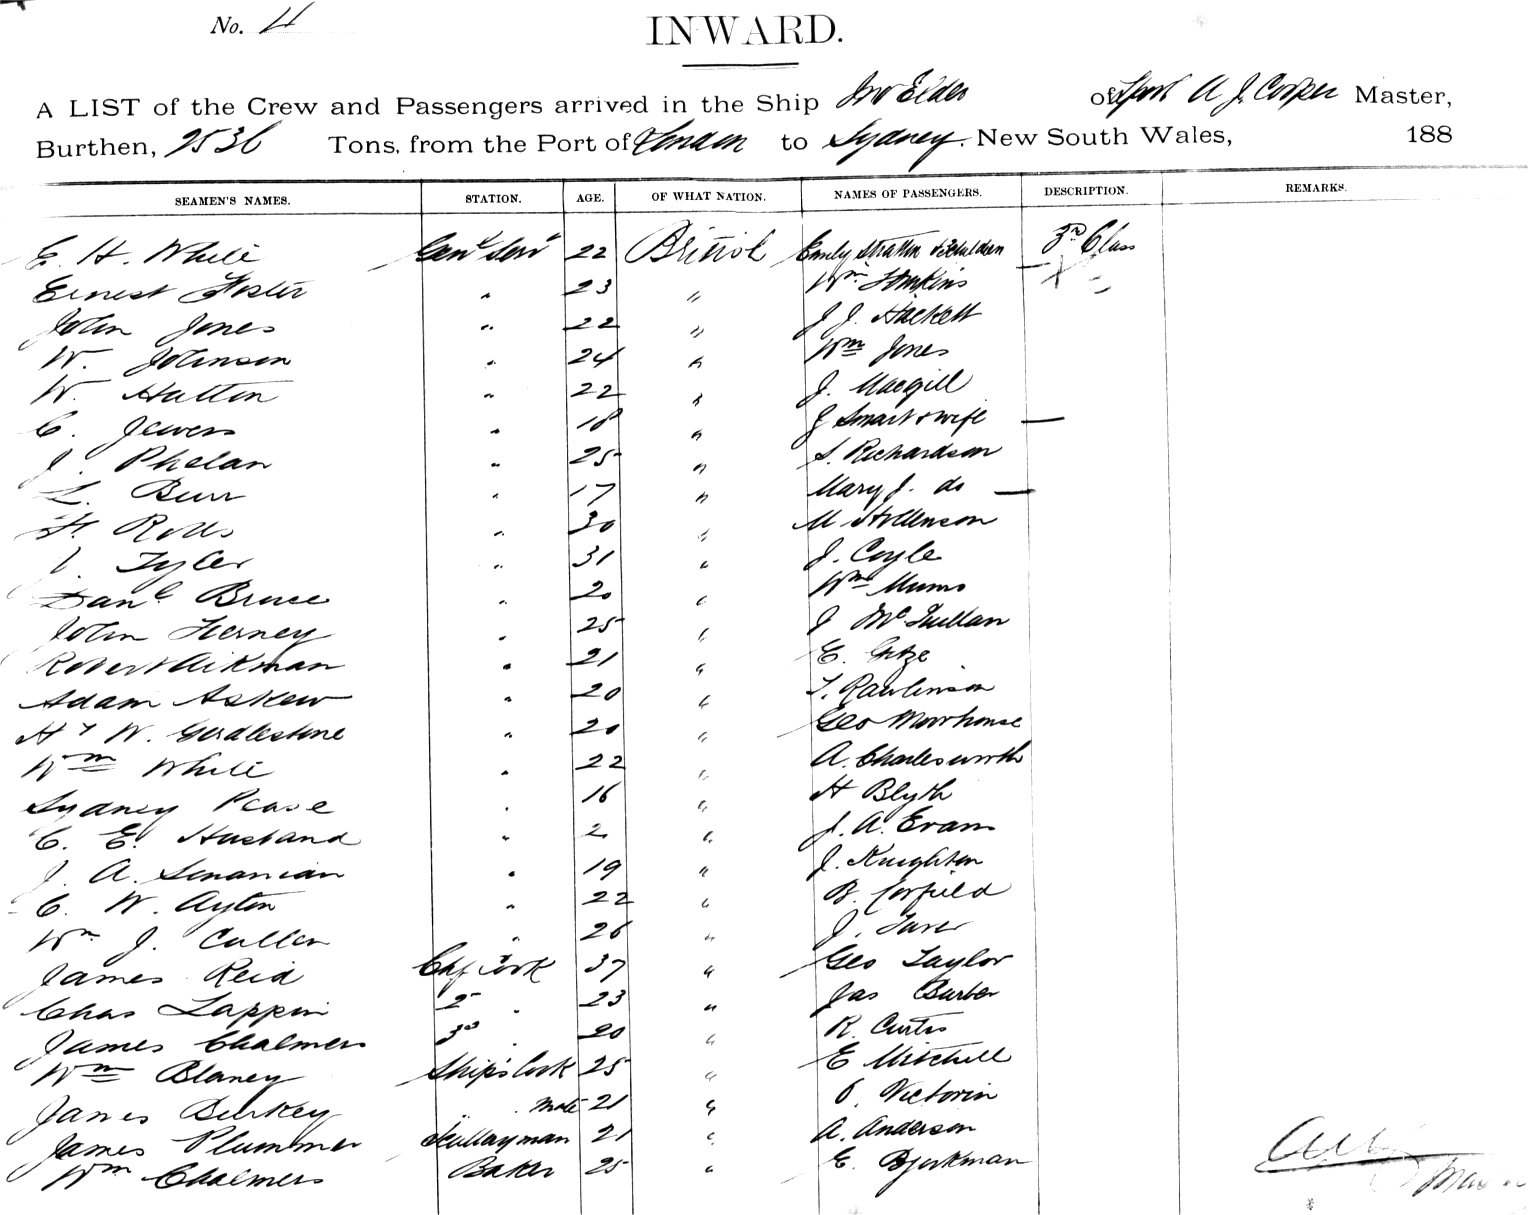 No. 4
INWARD.
A LIST of the Crew and Passengers arrived in the Ship Jno Elder of A J. Cooper Master,
Burthen, 2536 Tons, from the Port of London to Sydney. New South Wales, 188
SEAMEN'S NAMES. STATION. AGE. OF WHAT NATION. NAMES OF PASSENGERS. DESCRIPTION. REMARKS.
E. H. White Genl Servt 22 British Emily Stratton & Children 3rd Class
Ernest Foster " 23 " Wm Tomkins
John Jones " 22 " J J. Hackett
W. Johnson " 24 " Wm Jones
W. Hatton " 22 " J. Macgill
C. Jewers " 18 " J Smart & wife —
J. Phelan " 25 " S. Richardson
L. Burr " 17 " Mary J. do —
H. Rolls " 30 " M
Tyler " 31 " J. Coyle
Danl Bruce " 20 " Wm Mums
John Tierney " 25 " J
Robert Aikman " 21 " E.
Adam Askew " 20 " T. Rawlinson
Hy W. Girdlestone " 20 " Geo Moorhouse
Wm White " 22 " A. Charlesworth
Sydney Pease " 16 " H Blyth
C. E. Husband " 2 " J. A. Evans
J. A. " 19 " J. Knighton
C. W. Ayton " 22 " B. Corfield
Wm J. Cullen " 26 " J.
James Reid Chf Cook 37 " Geo Taylor
Chas Lappin 2 " 23 " Jas Barber
James Chalmers 3rd " 20 " R. Curtis
Wm Blaney Ship's Cook 25 " E Mitchell
James Burkey " mate 21 " Victorin
James Plummer Scullayman 21 " A. Anderson
Wm Chalmers Baker 25 " E. Bjorkman